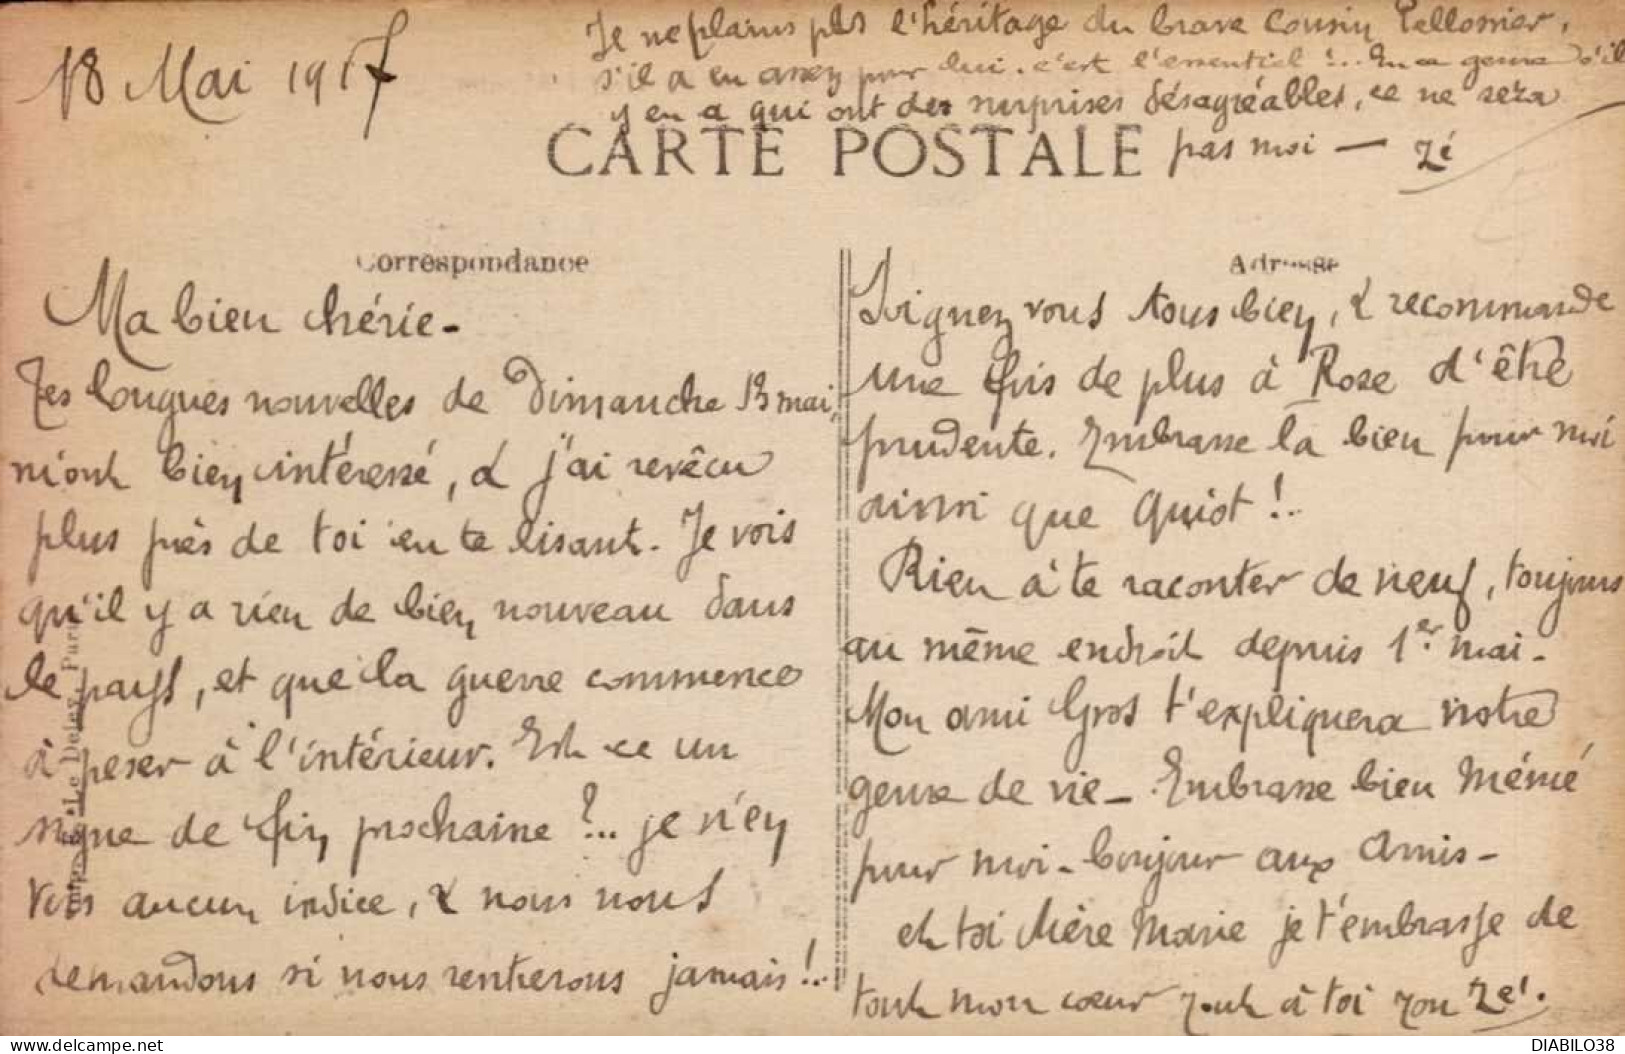 18 Mai 1917
Je ne plains pls l'héritage du brave Cousin Pellossier,
s'il a eu assez pour lui, c'est l'essentiel !.. genre s'il
y en a qui ont des surprises désagréables, ce ne sera
pas moi — Zé
CARTE POSTALE
Correspondance
Adresse
Ma bien chérie -
Tes longues nouvelles de Dimanche 13 mai,
m'ont bien intéressé, & j'ai revécu
plus près de toi en te lisant. Je vois
qu'il y a rien de bien nouveau dans
le pays, et que la guerre commence
à peser à l'intérieur. Est ce un
signe de fin prochaine ?... je n'en
vois aucun indice, & nous nous
demandons si nous rentrerons jamais !..
Soignez vous tous bien, & recommande
une fois de plus à Rose d'être
prudente. Embrasse la bien pour moi
ainsi que Quiot !..
Rien à te raconter de neuf, toujours
au même endroit depuis 1er mai -
Mon ami Gros t'expliquera notre
genre de vie - Embrasse bien Mémé
pour moi - bonjour aux Amis -
et toi chère Marie je t'embrasse de
tout mon cœur tout à toi ton Zé.
Le Deley, Paris
DELCAMPE.NET
DIABILO38